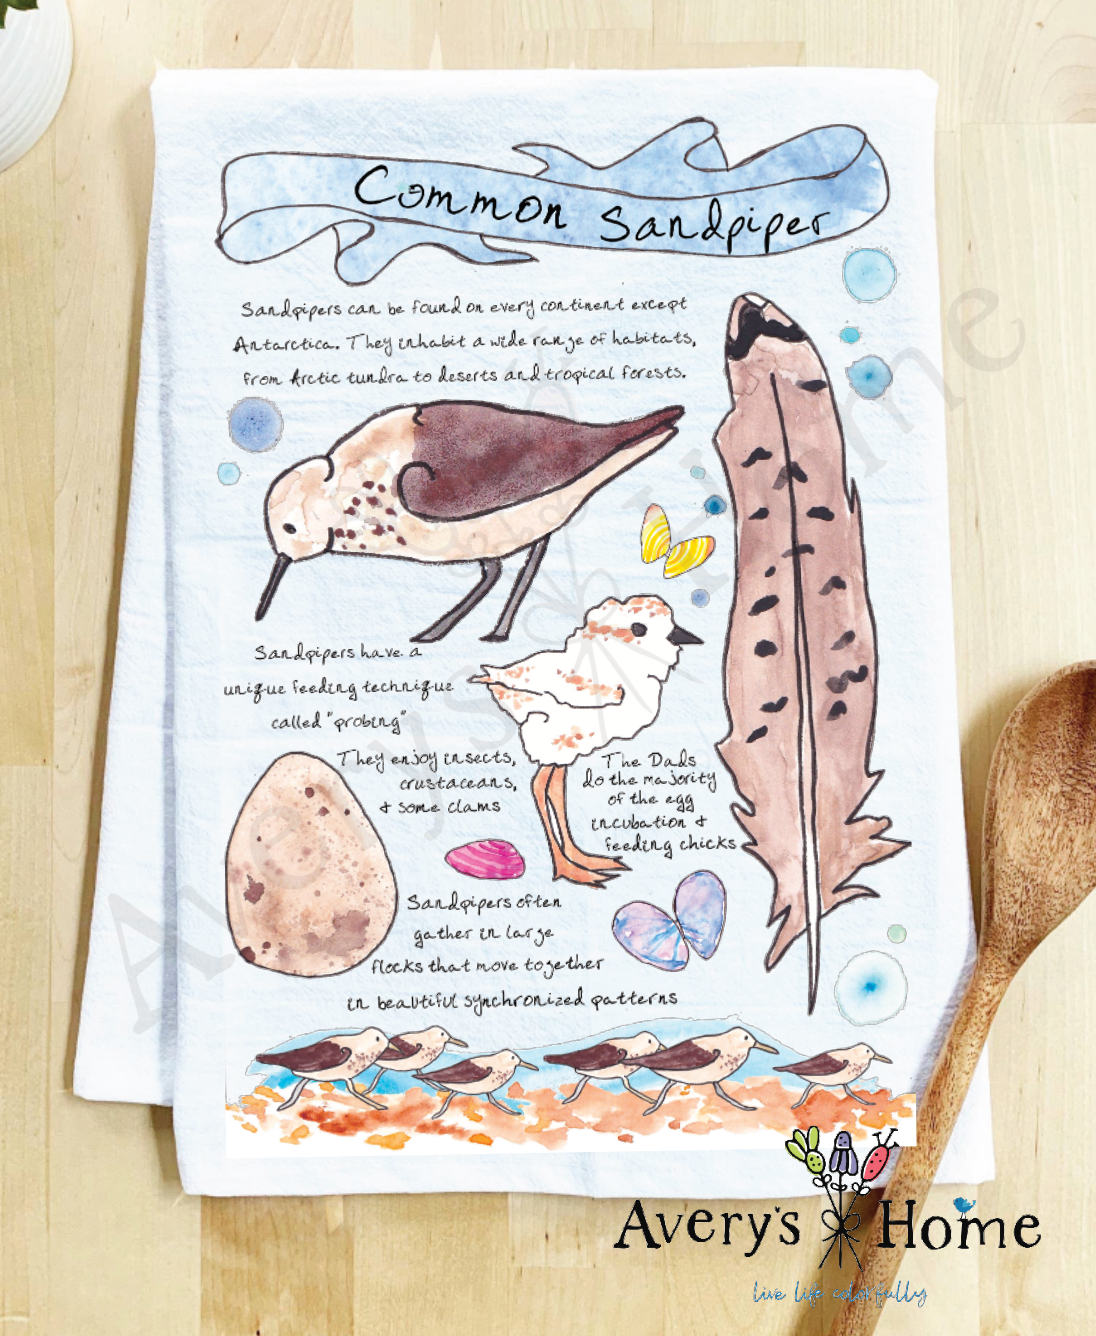 Common Sandpiper
Sandpipers can be found on every continent except
Antarctica. They inhabit a wide range of habitats,
from Arctic tundra to deserts and tropical forests.
Sandpipers have a
unique feeding technique
called "probing"
They enjoy insects,
crustaceans,
& some clams
The Dads
do the majority
of the egg
incubation &
feeding chicks
Sandpipers often
gather in large
flocks that move together
in beautiful synchronized patterns
Avery's Home
live life colorfully
Avery's Home